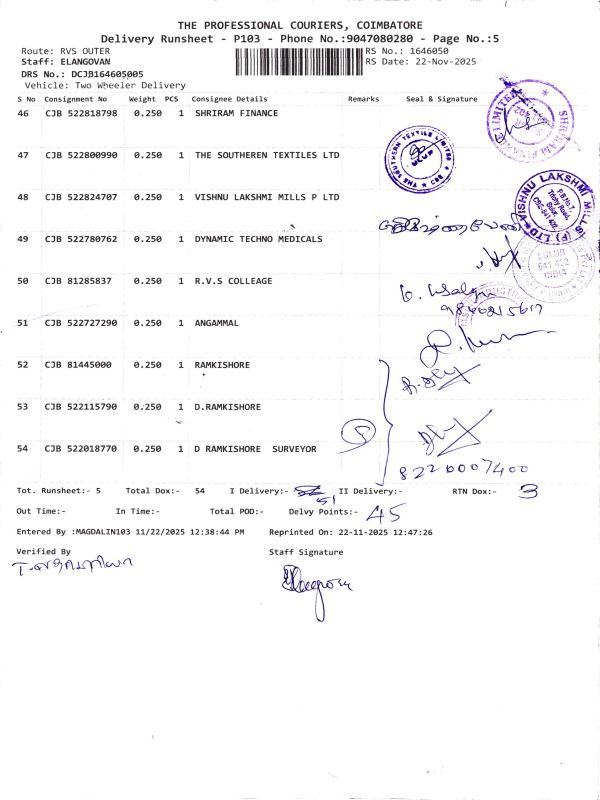 THE PROFESSIONAL COURIERS, COIMBATORE
Delivery Runsheet - P103 - Phone No.:9047080280 - Page No.:5
Route: RVS OUTER RS No.: 1646050
Staff: ELANGOVAN RS Date: 22-Nov-2025
DRS No.: DCJB164605005
Vehicle: Two Wheeler Delivery
S No Consignment No Weight PCS Consignee Details Remarks Seal & Signature
46 CJB 522818798 0.250 1 SHRIRAM FINANCE
47 CJB 522800990 0.250 1 THE SOUTHEREN TEXTILES LTD
THE SOUTHERN TEXTILE LIMITED
48 CJB 522824707 0.250 1 VISHNU LAKSHMI MILLS P LTD
VISHNU LAKSHMI MILLS (P) LTD
49 CJB 522780762 0.250 1 DYNAMIC TECHNO MEDICALS
INDIA
50 CJB 81285837 0.250 1 R.V.S COLLEAGE
51 CJB 522727290 1 ANGAMMAL 0.250
52 CJB 81445000 0.250 1 RAMKISHORE
53 CJB 522115790 0.250 1 D.RAMKISHORE
54 CJB 522018770 0.250 1 D RAMKISHORE SURVEYOR
3
8220007400
Tot. Runsheet:- 5 Total Dox:- 54 I Delivery:- 51 II Delivery:- RTN Dox:- 3
Out Time:- In Time:- Total POD:- Delvy Points:- 45
Entered By :MAGDALIN103 11/22/2025 12:38:44 PM Reprinted On: 22-11-2025 12:47:26
Verified By Staff Signature